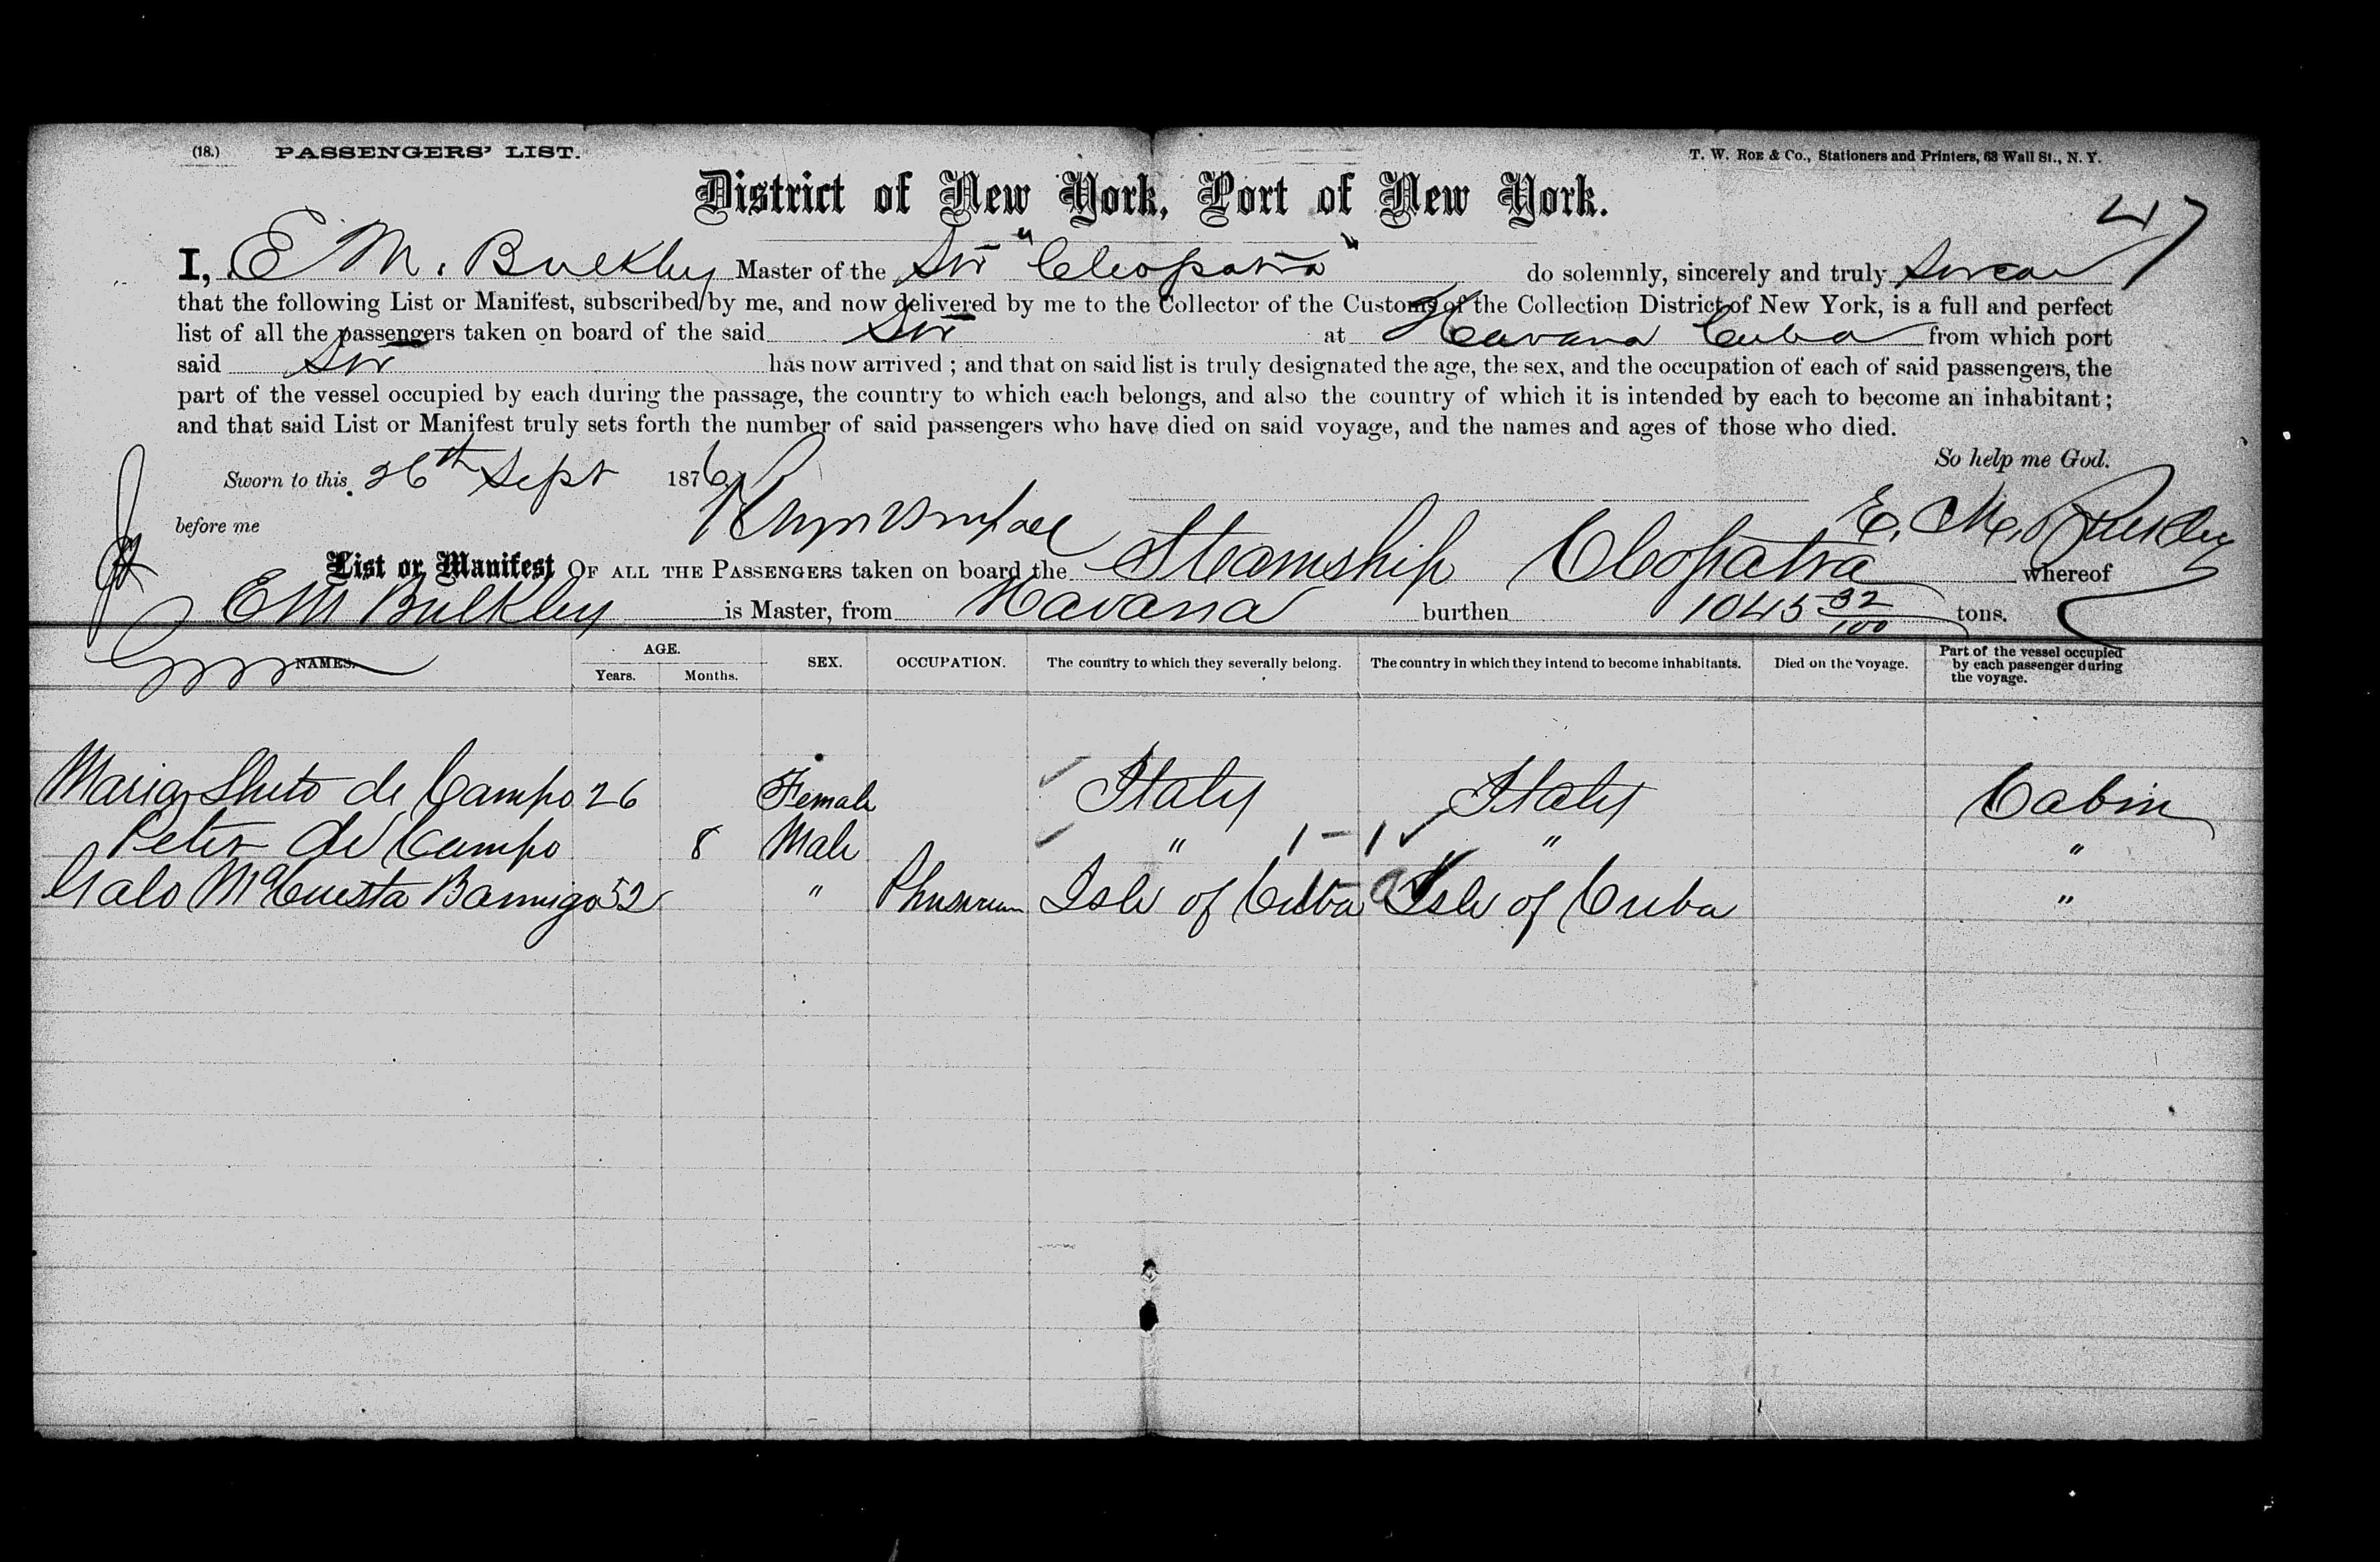 (18.) PASSENGERS' LIST. T. W. ROE & Co., Stationers and Printers, 63 Wall St., N. Y.
District of New York, Port of New York.
47
I, E M. Bulkley Master of the Str "Cleopatra" do solemnly, sincerely and truly swear
that the following List or Manifest, subscribed by me, and now delivered by me to the Collector of the Customs of the Collection District of New York, is a full and perfect
list of all the passengers taken on board of the said Str at Havana Cuba from which port
said Str has now arrived ; and that on said list is truly designated the age, the sex, and the occupation of each of said passengers, the
part of the vessel occupied by each during the passage, the country to which each belongs, and also the country of which it is intended by each to become an inhabitant ;
and that said List or Manifest truly sets forth the number of said passengers who have died on said voyage, and the names and ages of those who died.
So help me God.
Sworn to this 26th Sept 1876
before me E. M. Bulkley
List or Manifest OF ALL THE PASSENGERS taken on board the Steamship Cleopatra whereof
E M Bulkley is Master, from Havana burthen 1045 32/100 tons.
NAMES. AGE. Years. Months. SEX. OCCUPATION. The country to which they severally belong. The country in which they intend to become inhabitants. Died on the voyage. Part of the vessel occupied by each passenger during the voyage.
Maria de Campo 26 Female Italy Italy Cabin
Peter de Campo 8 Male " 1-1 " "
Galo Cuesta 52 " Isle of Cuba Isle of Cuba "